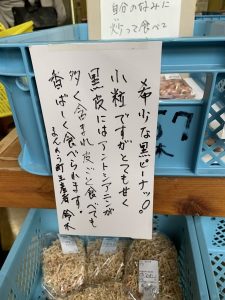 自分の好みに
炒って食べて
希少な黒ピーナッツ。
小粒ですがとても甘く
黒皮にはアントシアニンが
多く含まれ皮ごと食べても
香ばしく食べられます。
生産者 鈴木